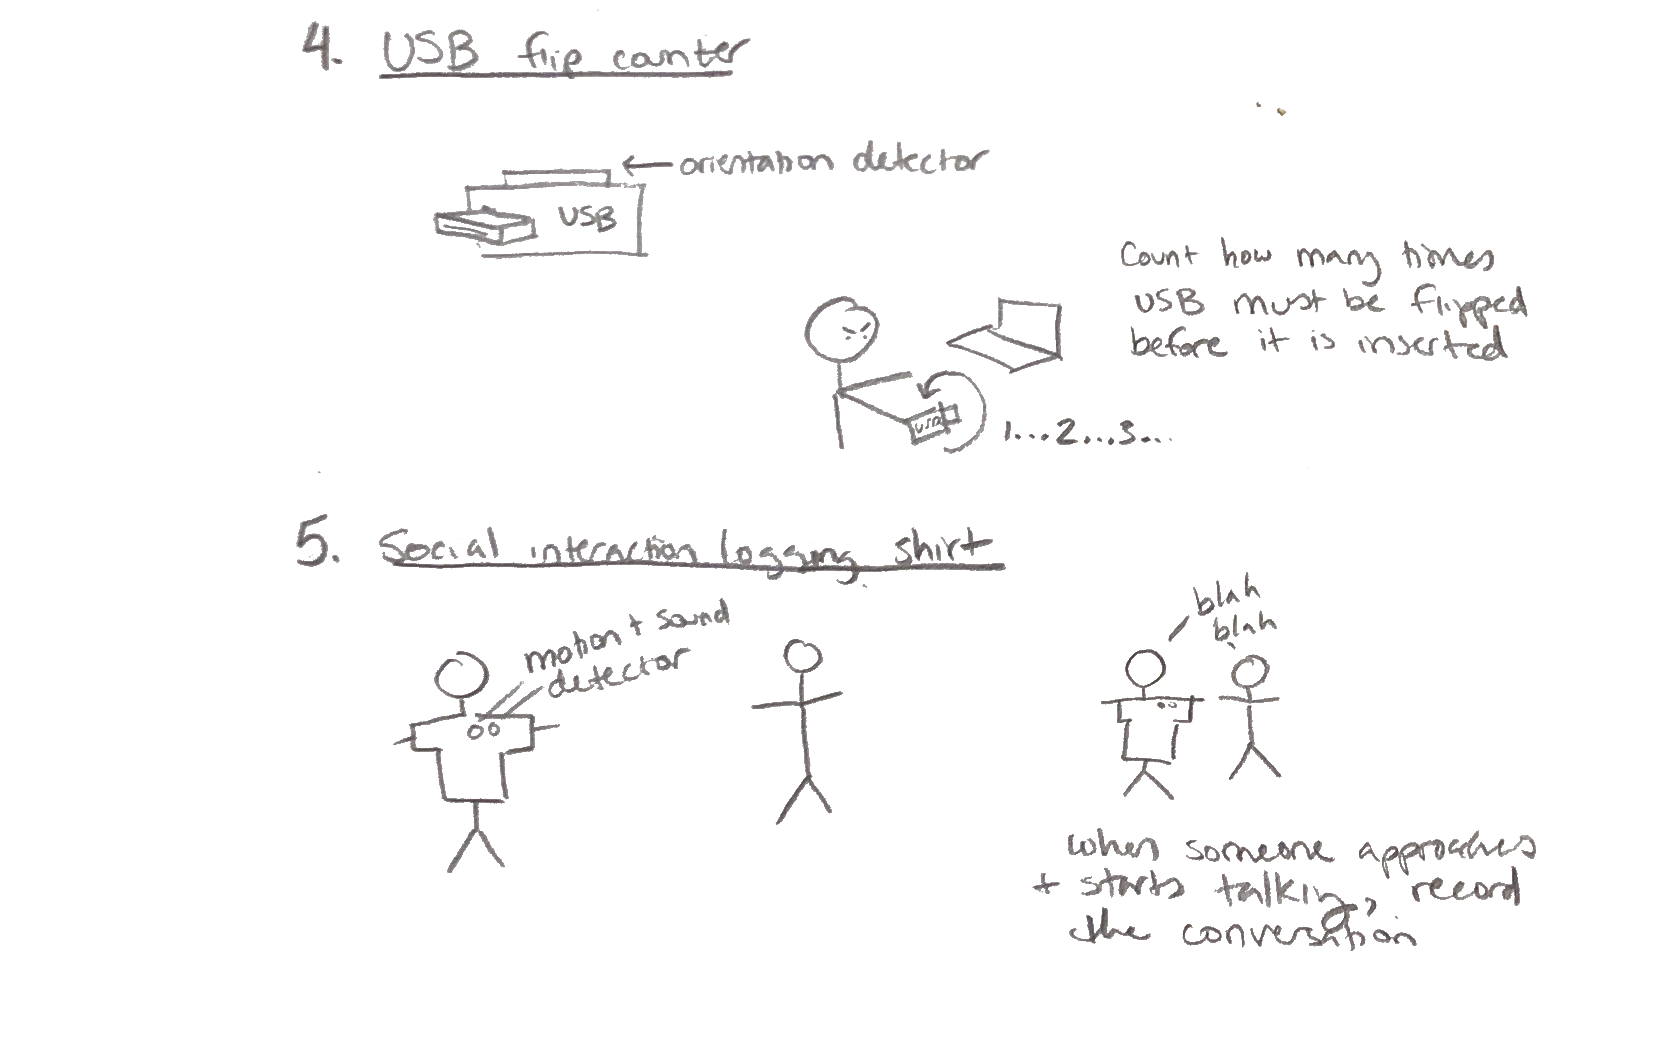 4. USB flip counter
← orientation detector
USB
Count how many times
USB must be flipped
before it is inserted
USB
1...2...3...
5. Social interaction logging shirt
motion + sound
detector
blah
blah
when someone approaches
+ starts talking, record
the conversation